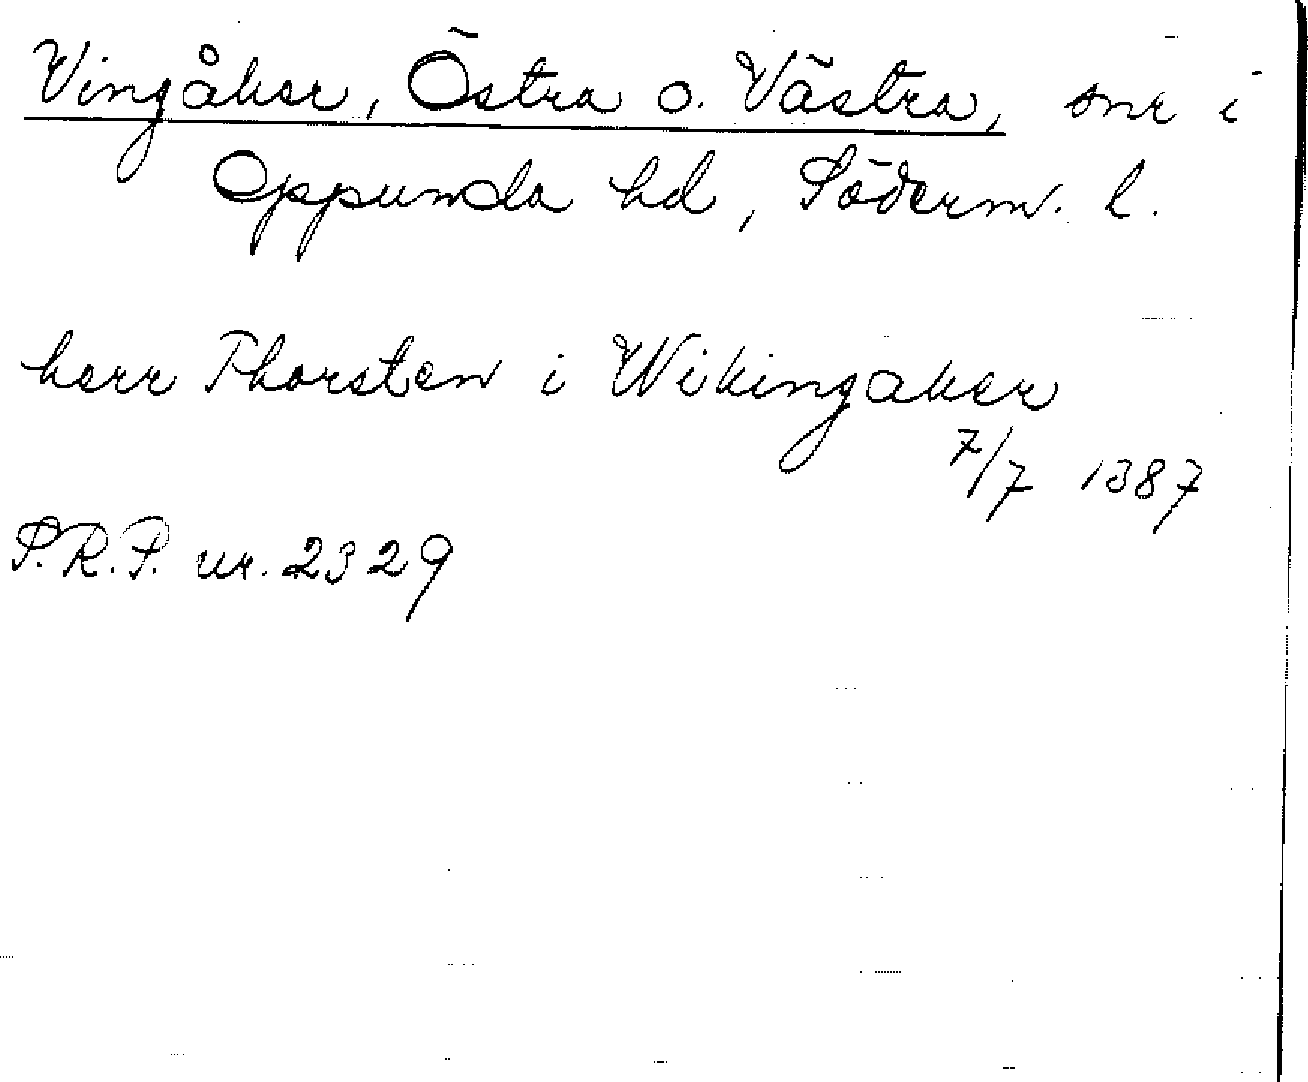 Vingåker, Östra o. Västra, snr i
Oppunda hd, Söderm. l.
herr Thorsten i Wikingaker
7/7 1387
S.R.P. nr. 2329